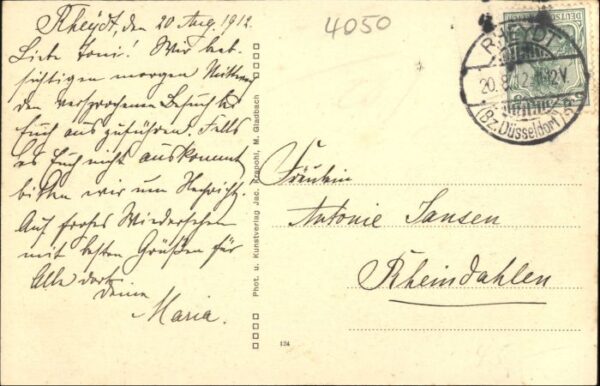 Rheydt, den 20 Aug. 1912.
Liebe Toni! Wir beab-
sichtigen morgen Mittwoch
den versprochenen Besuch bei
Euch auszuführen. Falls
es Euch nicht auskommt
bitten wir um Nachricht.
Auf frohes Wiedersehen
mit besten Grüßen für
Alle dort
Deine
Maria.
Phot. u. Kunstverlag Jac. Krapohl, M. Gladbach
4050
DEUTSCHES
RHEYDT
20.8.12
12V
(Bz. Düsseldorf)
Fräulein
Antonie Jansen
Rheindahlen
124